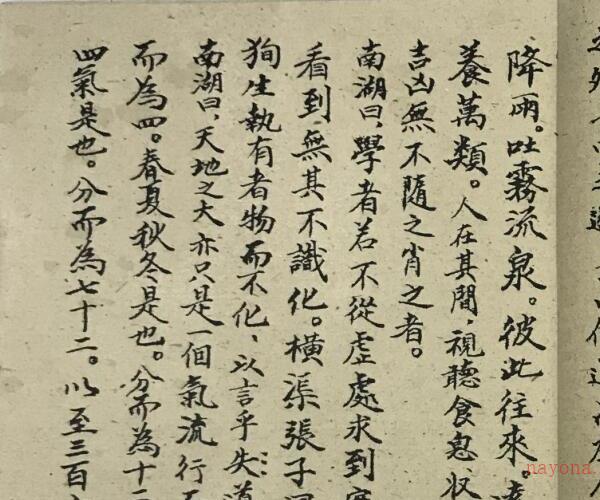 降雨。吐霧流泉。彼此往來。
養萬類。人在其間，視聽食息、
吉凶無不隨之肖之者。
南湖曰，學者若不從虛處求到
看到無其不識化。橫渠張子
狥生執有者物而不化、以言乎失道
南湖曰，天地之大亦只是一個氣流行
而為四。春夏秋冬是也。分而為十
四氣是也。分而為七十二。以至三百
nayona.